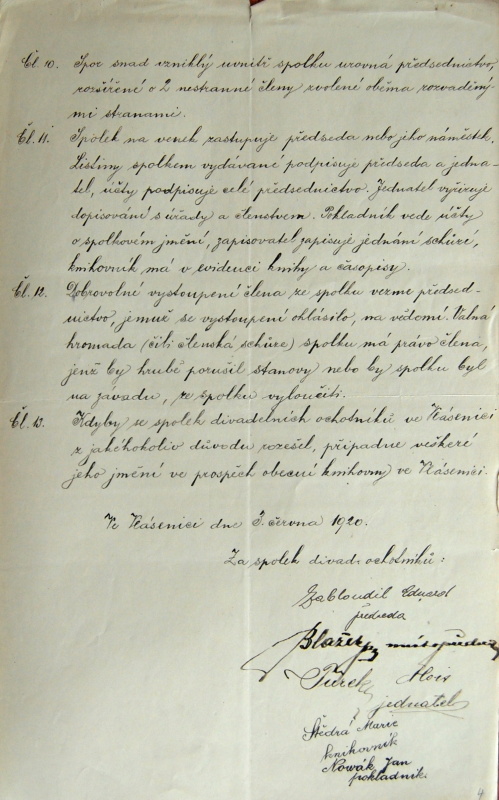 Čl. 10. Spor snad vzniklý uvnitř spolku urovná předsednictvo,
rozšířené o 2 nestranné členy zvolené oběma rozvaděný-
mi stranami.
Čl. 11. Spolek na venek zastupuje předseda nebo jeho náměstek.
Listiny spolkem vydávané podpisuje předseda a jedna-
tel, účty podpisuje celé předsednictvo. Jednatel vyřizuje
dopisování s úřady a členstvem. Pokladník vede účty
o spolkovém jmění, zapisovatel zapisuje jednání schůzí,
knihovník má v evidenci knihy a časopisy.
Čl. 12. Dobrovolné vystoupení člena ze spolku vezme předsed-
nictvo, jemuž se vystoupení ohlásilo, na vědomí. Valná
hromada (čili členská schůze) spolku má právo člena,
jenž by hrubě porušil stanovy nebo by spolku byl
na závadu, ze spolku vyloučiti.
Čl. 13. Kdyby se spolek divadelních ochotníků ve Vásenici
z jakéhokoliv důvodu rozešel, připadne veškeré
jeho jmění ve prospěch obecní knihovny ve Vásenici.
Ve Vásenici dne 3. června 1920.
Za spolek divad. ochotníků:
Zabloudil Eduard
předseda
Blažek místopředseda
Alois
jednatel
Štědrá Marie
knihovník
Nowák Jan
pokladník.
4